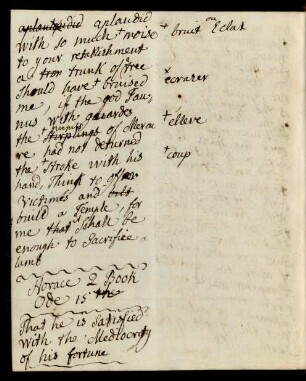 aplaudid
with so much + noise
to your retablishment
a tron trunk of tree
should have + bruised
me, if the god Fau,
nus with
the + of Mercu
re had not deturned
the + stroke with his
hand, Think to offer
victimes and
build a Temple, for
me that Schall be
enough to Sacrifice
lamb
Horace 2 Book
Ode 15
That he is Satisfied
with the Mediocrity
of his fortune
+ bruit ou Eclat
x ecrazer
+ elleve
+ coup